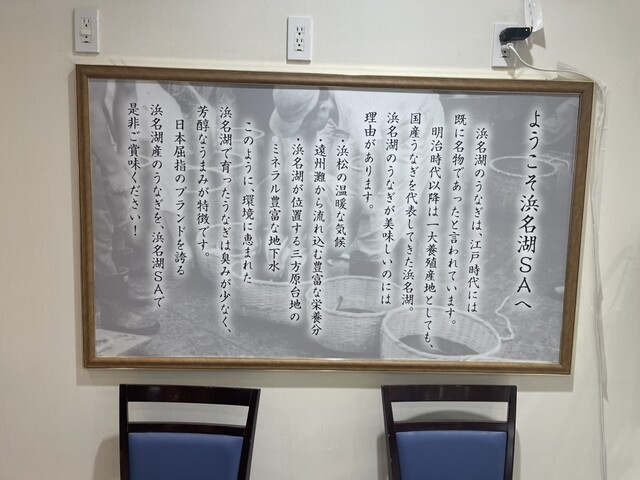 ようこそ浜名湖SAへ
浜名湖のうなぎは、江戸時代には
既に名物であったと言われています。
明治時代以降は一大養殖産地としても、
国産うなぎを代表してきた浜名湖。
浜名湖のうなぎが美味しいのには
理由があります。
・浜松の温暖な気候
・遠州灘から流れ込む豊富な栄養分
・浜名湖が位置する三方原台地の
ミネラル豊富な地下水
このように、環境に恵まれた
浜名湖で育ったうなぎは臭みが少なく、
芳醇なうまみが特徴です。
日本屈指のブランドを誇る
浜名湖産のうなぎを、浜名湖SAで
是非ご賞味ください！